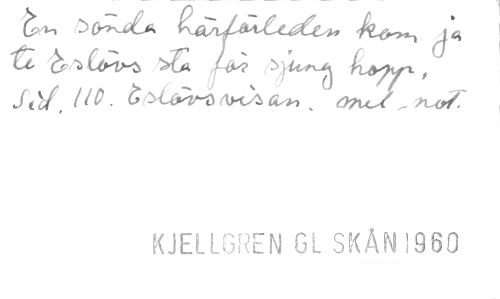 En sönda härförleden kom ja
te Eslövs sta för sjung hopp,
Sid. 110. Eslövsvisan. mel-not.
KJELLGREN GL SKÅN 1960